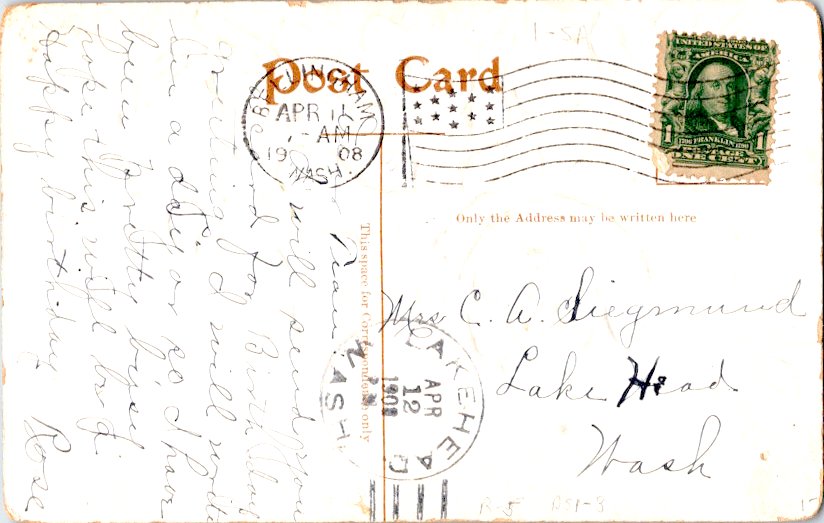 Post Card
BELLINGHAM
APR 11
-AM
1908
WASH.
UNITED STATES OF
AMERICA
1 1706 FRANKLIN 1790 1
POSTAGE
ONE CENT
1-SA
Only the Address may be written here
This space for Correspondence only
Mrs C. A. Siegmund
Lake Head
Wash
LAKEHEAD
APR
12
PM
1908
WASH
Dear
I will send you
card for Birthday
greetings I will write
in a day or so I have
been pretty busy
hope this will find
happy birthday
Rose
R-5 BS1-8